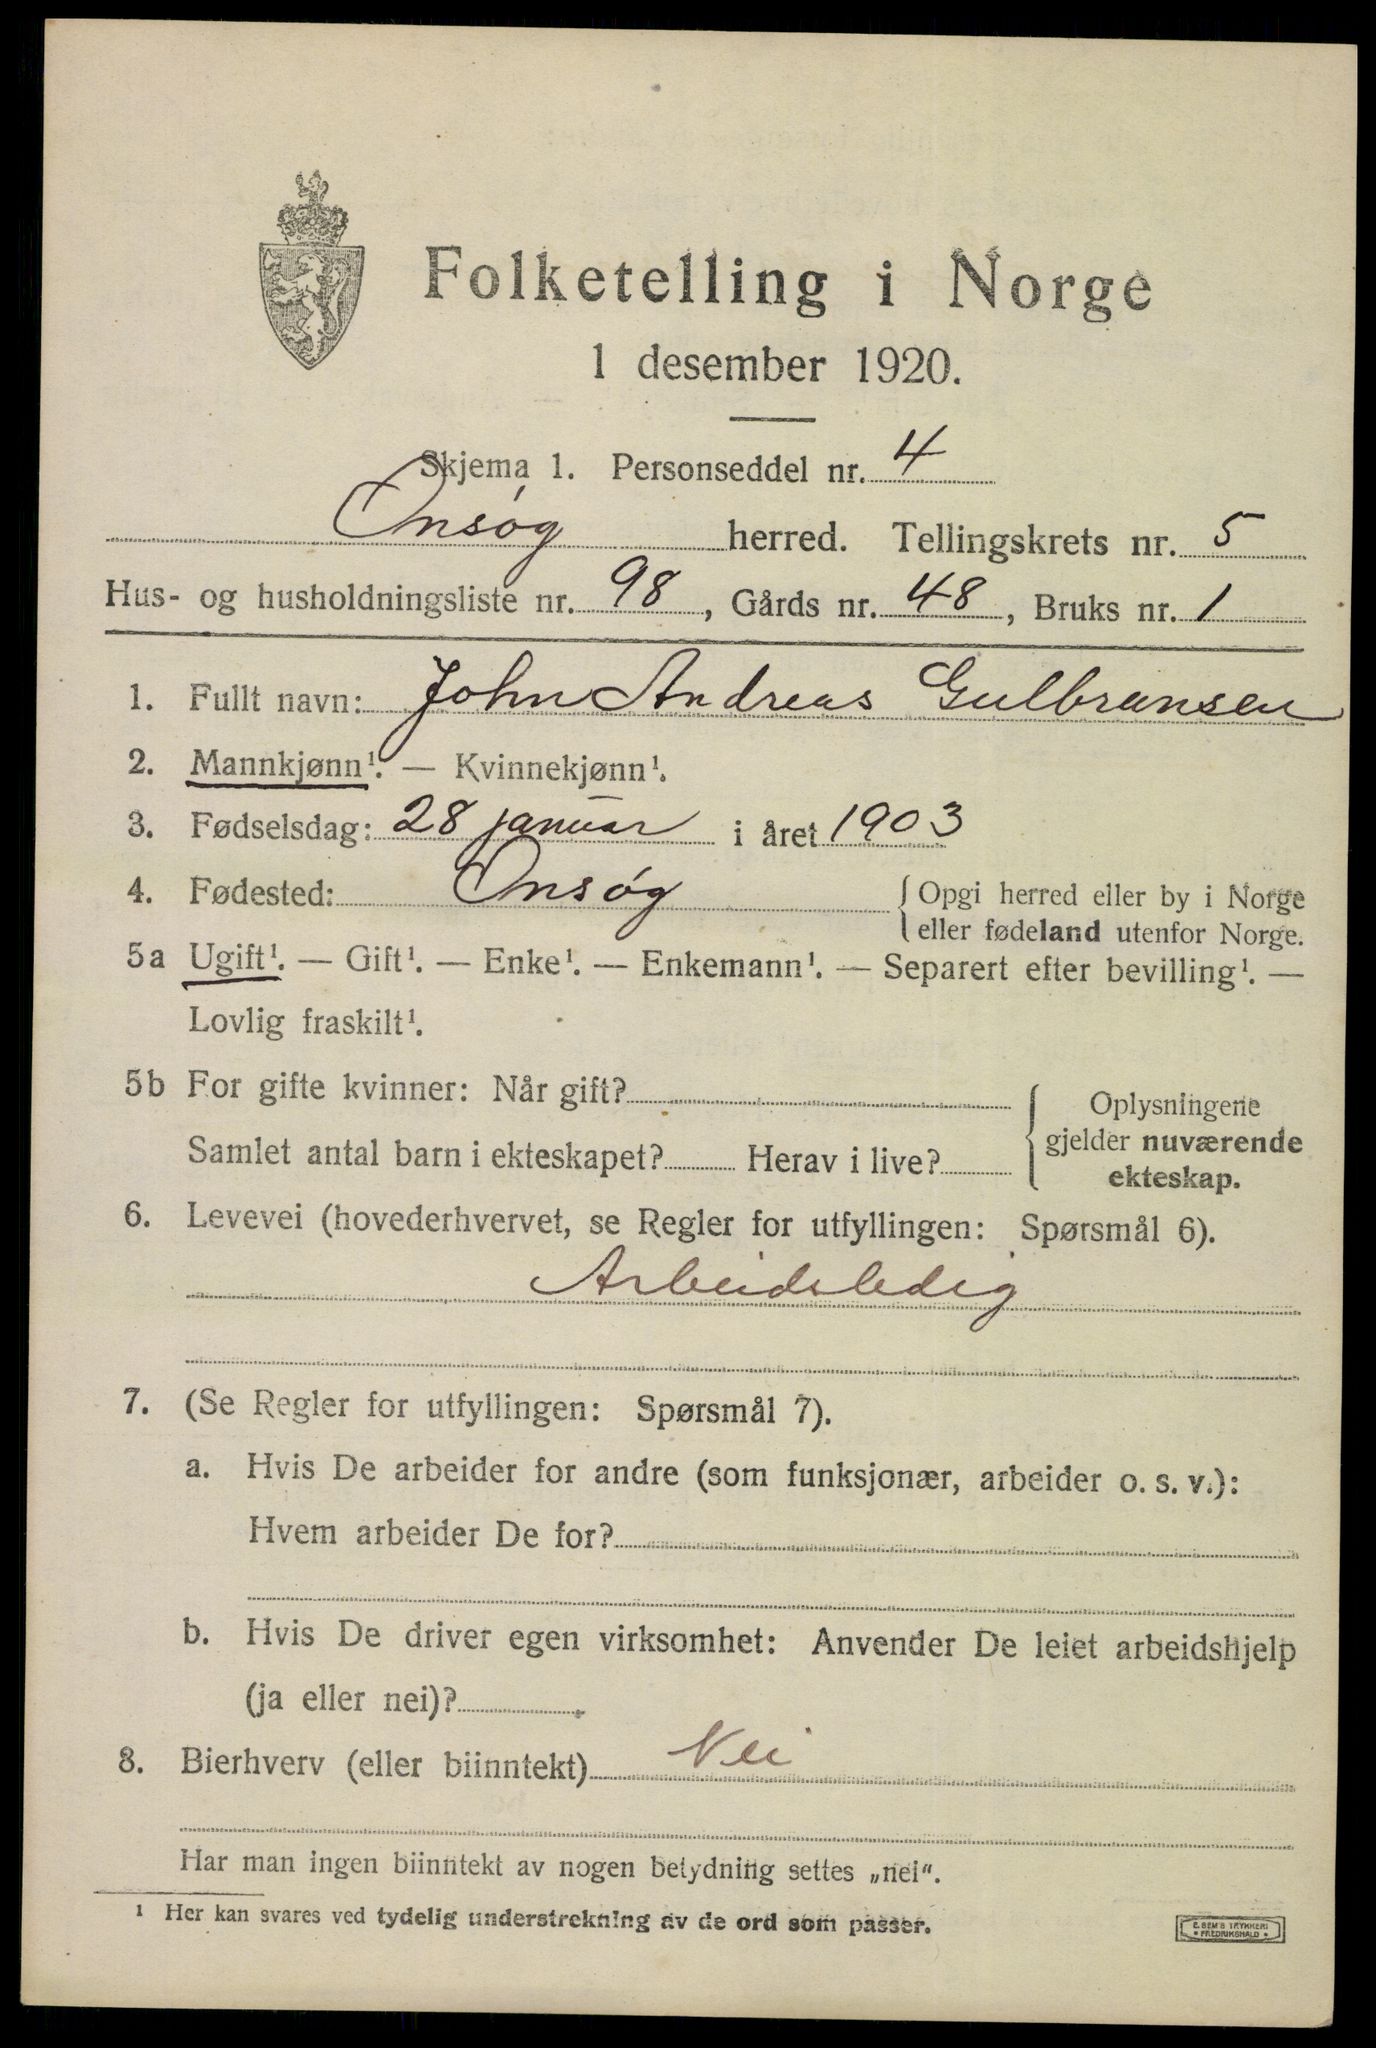 Folketelling i Norge
1 desember 1920.
Skjema 1. Personseddel nr. 4
Onsøg herred. Tellingskrets nr. 5
Hus- og husholdningsliste nr. 98, Gårds nr. 48, Bruks nr. 1
1. Fullt navn: John Andreas Gulbransen
2. Mannkjønn¹. — Kvinnekjønn¹.
3. Fødselsdag: 28 januar i året 1903
4. Fødested: Onsøg { Opgi herred eller by i Norge
eller fødeland utenfor Norge.
5a Ugift¹. — Gift¹. — Enke¹. — Enkemann¹. — Separert efter bevilling¹. —
Lovlig fraskilt¹.
5b For gifte kvinner: Når gift?
Samlet antal barn i ekteskapet? Herav i live?
{ Oplysningene
gjelder nuværende
ekteskap.
6. Levevei (hovederhvervet, se Regler for utfyllingen: Spørsmål 6).
Arbeidsledig
7. (Se Regler for utfyllingen: Spørsmål 7).
a. Hvis De arbeider for andre (som funksjonær, arbeider o. s. v.):
Hvem arbeider De for?
b. Hvis De driver egen virksomhet: Anvender De leiet arbeidshjelp
(ja eller nei)?
8. Bierhverv (eller biinntekt) Nei
Har man ingen biinntekt av nogen betydning settes „nei“.
¹ Her kan svares ved tydelig understrekning av de ord som passer.
E. SEM'S TRYKKERI
• FREDRIKSHALD •